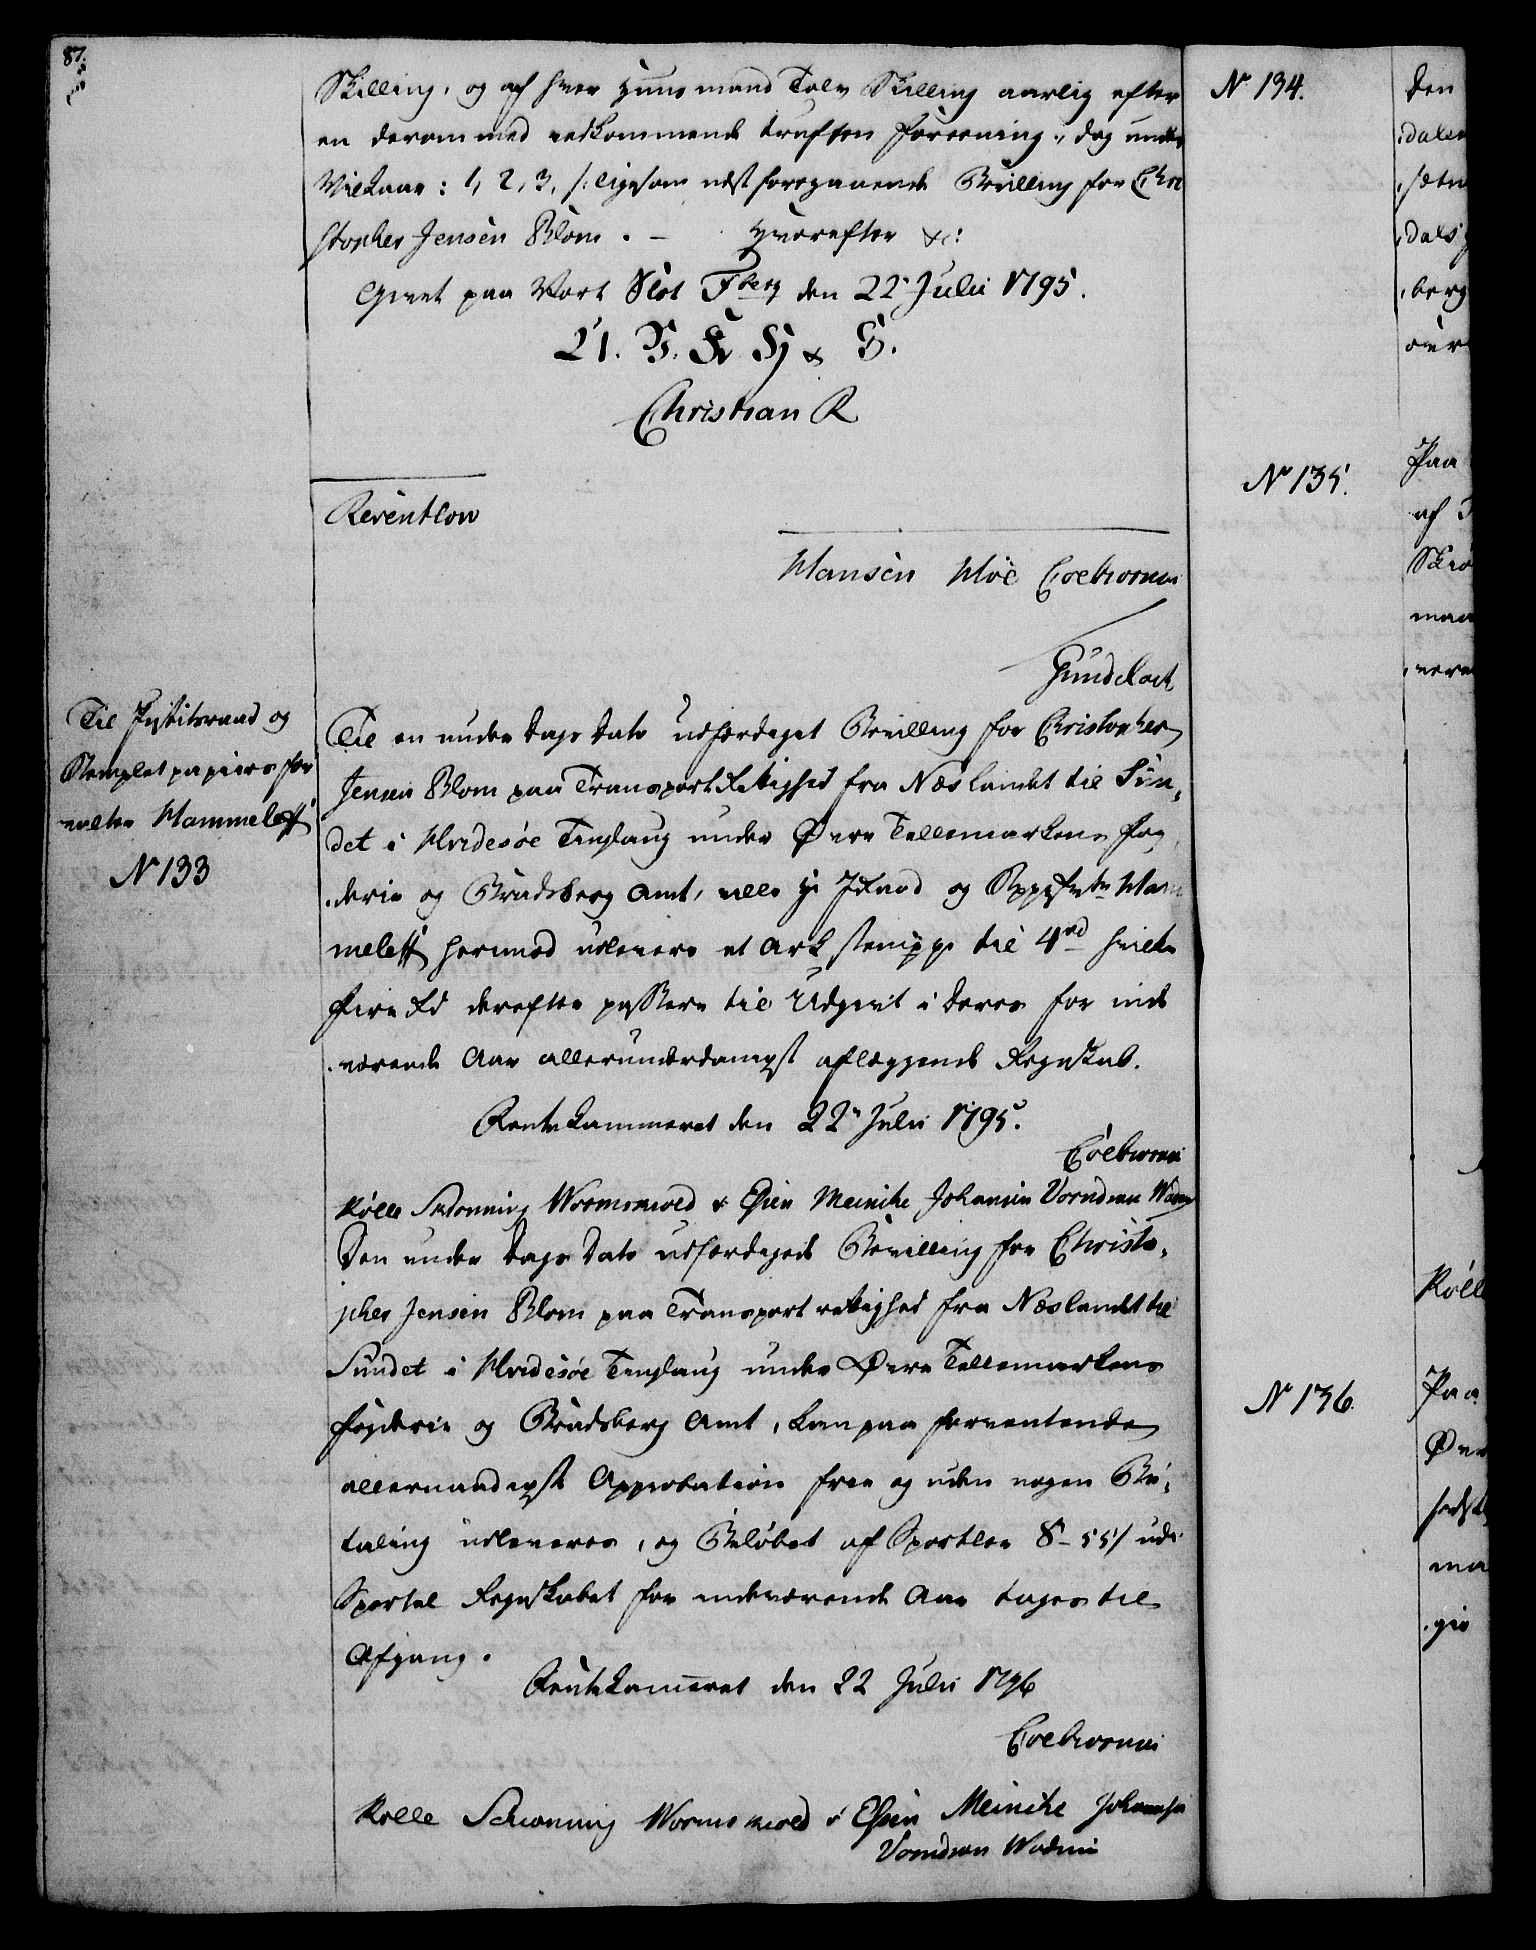 87.
Skilling, og af hver Huusmand Tolv Skilling aarlig efter
en derom med vedkommende truffen Foreening, dog under
Vilkaar: 1, 2, 3, /: ligesom næst foregaaende Bevilling for Chri
stopher Jensen Blom. - Hvorefter &c:
Givet paa Vort Slot Fberg den 22 Julii 1795.
Christian R
Reventlow
Hansen Moe Colbiornsen
Gundelach
Til Justitsraad og
Stemplet papiirs for
valter Hammeleff
N 133
Til en under Dags Dato udfærdiget Bevilling for Christopher
Jensen Blom paa Transport Rettighed fra Næslandet til Sun,
det i Hvidesøe Tinglaug under Øvre Tellemarkens Fog,
derie og Bradsberg Amt, ville Hr JRaad og Forvalter Ham
meleff hermed udlevere et Ark stemppe til 4rd hvilke
fire Rd derefter passere til Udgivt i Deres for inde
værende Aar allerunderdanigst aflæggende Regnskab.
Rentekammeret den 22 Julii 1795.
Colbiornsen
Rølle Schonning Wormskiold & Essen Meinche Johansen Vorndran Wadum
Den under Dags Dato udfærdigede Bevilling for Christo,
pher Jensen Blom paa Transport rettighed fra Næslandet til
Sundet i Hvidesøe Tinglaug under Øvre Tellemarkens
Fogderie og Bradsberg Amt, kan paa forventende
allernaadigst Approbation frie og uden nogen Be,
taling udleveres, og Beløbet af Sportler 8 - 55/ udi
Sportel Regnskabet for indeværende Aar tages til
Afgang.
Rentekammeret den 22 Julii 1796
Colbiornsen
Rølle Schonning Wormskiold & Essen Meinche Johansen
Vorndran Wadum
N 134.
N 135.
N 136.
Den
dals
berg
Paa
af
maa
Rølle
Paa
Øvre
ma